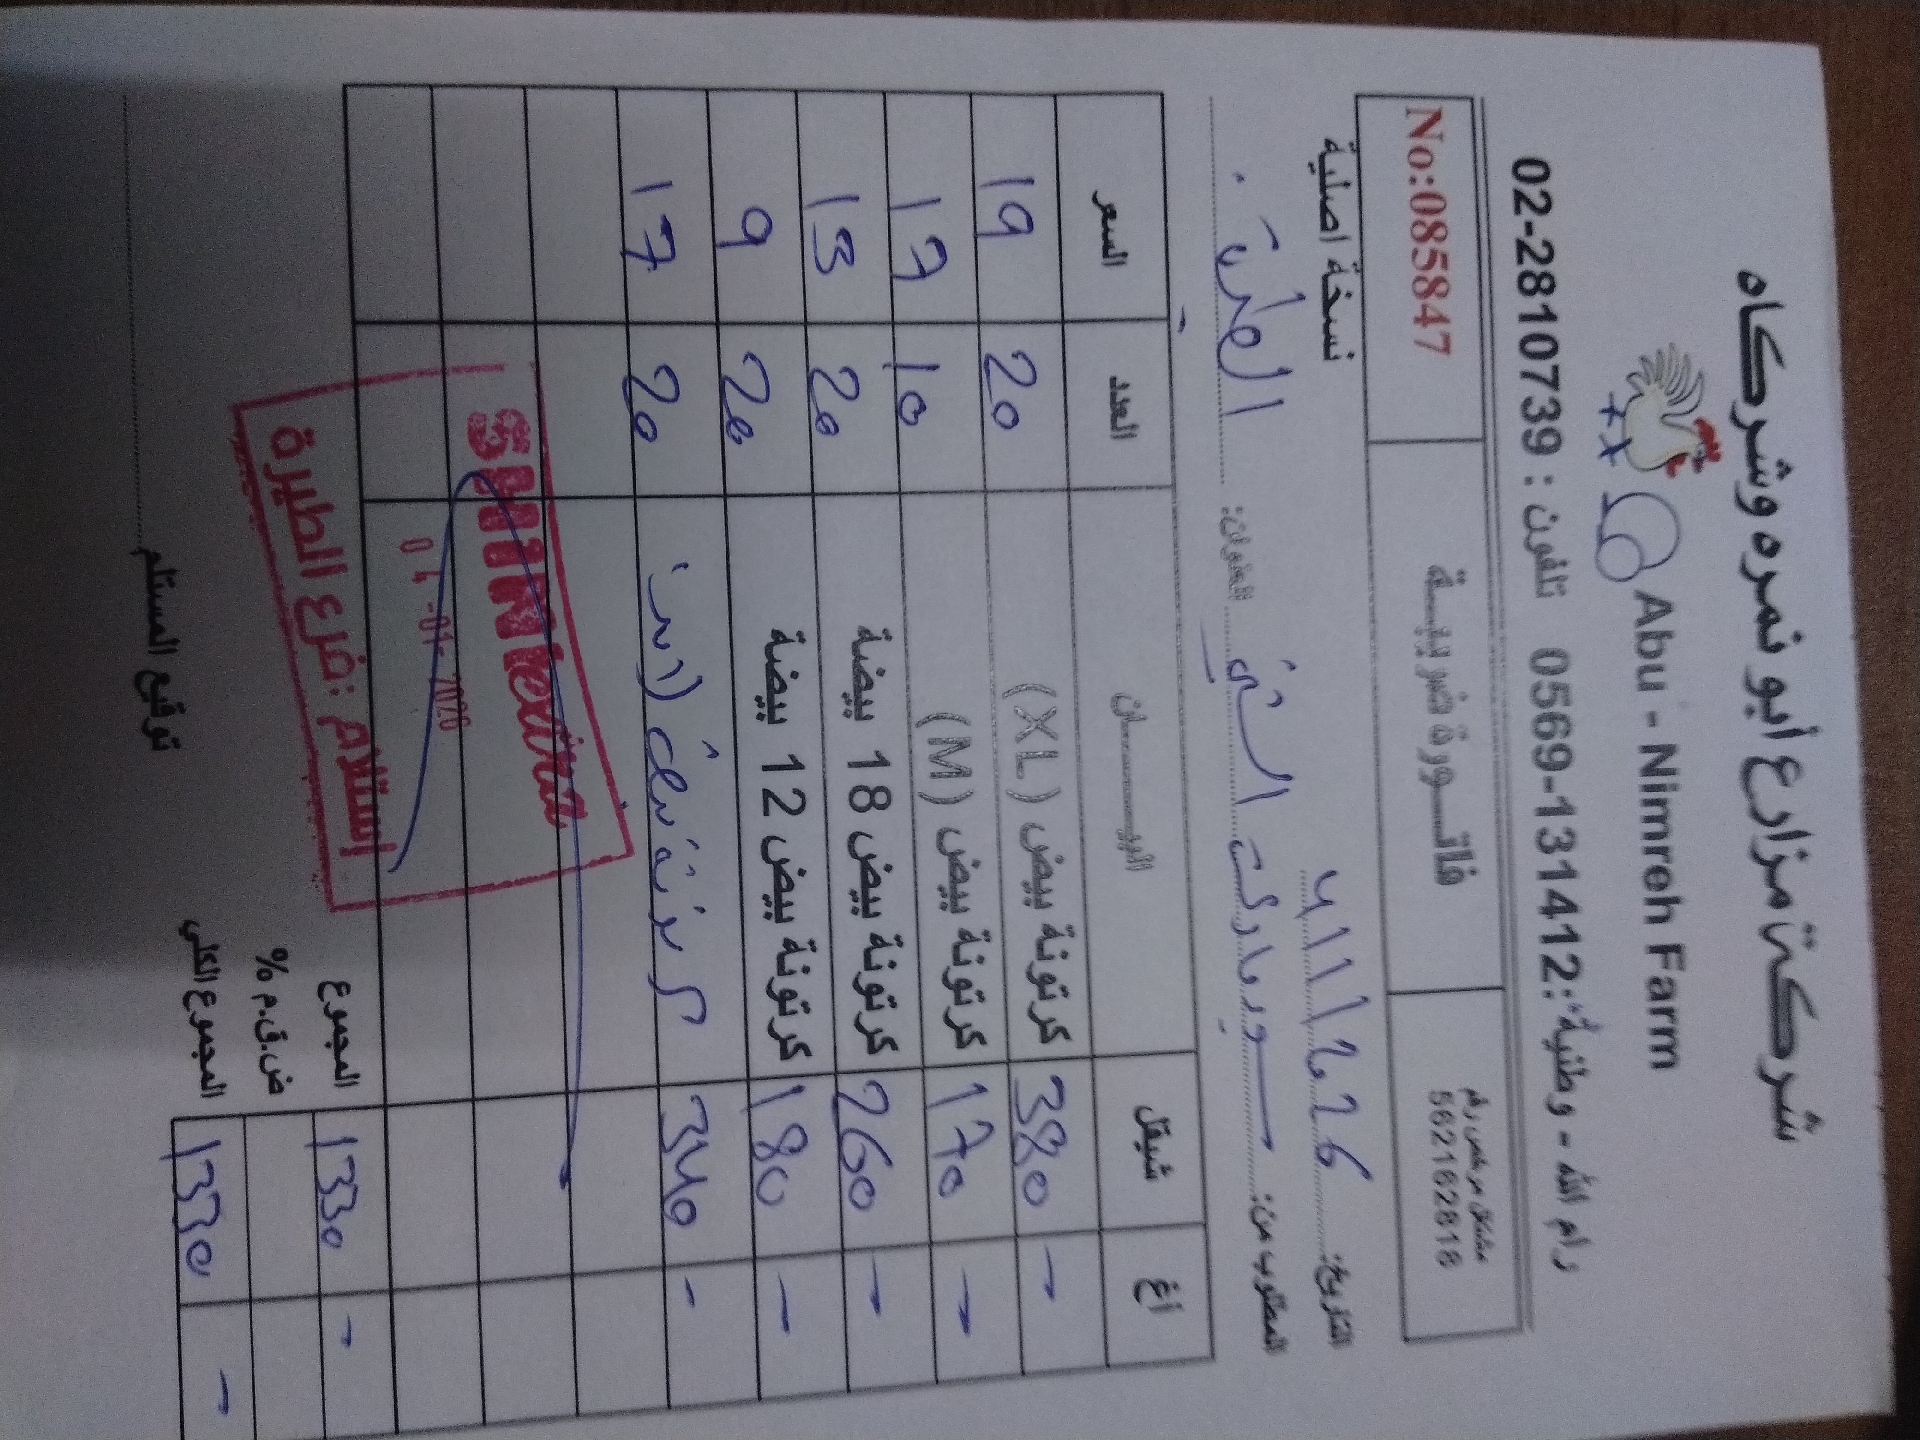 شركة مزارع أبو نمره وشركاه
Abu - Nimreh Farm
رام الله - وطنية: 0569-131412 تلفون : 02-2810739
مشتغل مرخص رقم
562162818
فاتورة ضريبية
No:085847
التاريخ: 4/1/2026
نسخة اصلية
المطلوب من: سوبرماركت العنوان: الطيرة
شيقل أغ البيــــان العدد السعر
380 - كرتونة بيض (XL) 20 19
170 - كرتونة بيض (M) 10 17
260 - كرتونة بيض 18 بيضة 20 13
180 - كرتونة بيض 12 بيضة 20 9
340 - 20 17
SHINI extra
04-01-2026
إستلام : فرع الطيرة
المجموع 1330 -
ض.ق.م %
المجموع الكلي 1330 -
توقيع المستلم